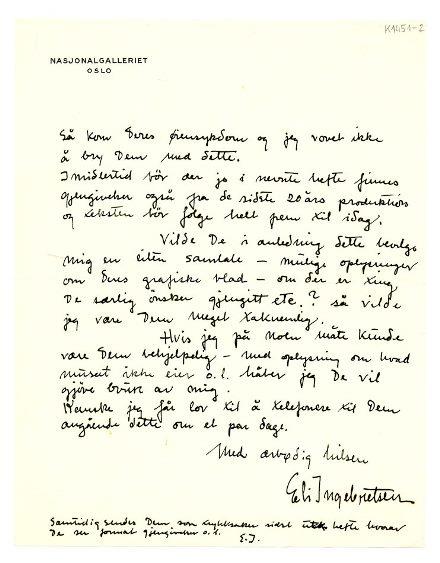 K1451-2
NASJONALGALLERIET
OSLO
Så kom Deres øiensykdom og jeg vovet ikke
å bry Dem med dette.
Imidlertid bör der jo i nevnte hefte finnes
gjengivelser også fra de sidste 20 års produktion
og teksten bör følge helt frem til idag.
Vilde De i anledning dette bevilge
mig en liten samtale – mulige oplysninger
om Deres grafiske blad – om der er ting
De særlig ønsker gjengitt etc.? så vilde
jeg være Dem meget taknemlig.
Hvis jeg på noen måte kunde
være Dem behjelpelig – med oplysning om hvad
museet ikke eier o.l. håber jeg De vil
gjöre bruk av mig.
Kanske jeg får lov til å telefonere til Dem
angående dette om et par dage.
Med ærbødig hilsen
Eli Ingebretsen
Samtidig sendes Dem som tryksaker sidst hefte hvorav
De ser format gjengivelser o.l.
E.I.